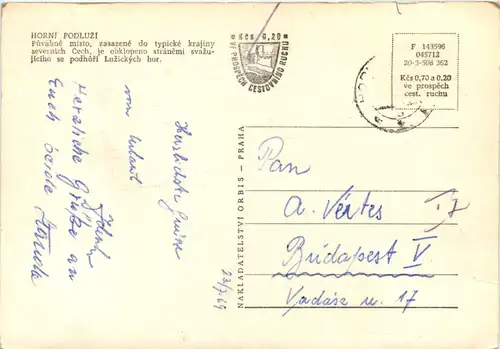 HORNÍ PODLUŽÍ
Půvabné místo, zasazené do typické krajiny
severních Čech, je obklopeno stráněmi svažu-
jícího se podhůří Lužických hor.
Kčs 0,20
VE PROSPĚCH CESTOVNÍHO RUCHU
F 143596
045712
20-3-508 362
Kčs 0,70 a 0,20
ve prospěch
cest. ruchu
NAKLADATELSTVÍ ORBIS - PRAHA
Herzliche Grüße
vom Urlaub
Herzliche Grüße an
Euch beide
Pan
A. Vértes
Budapest V.
Vadász u. 17